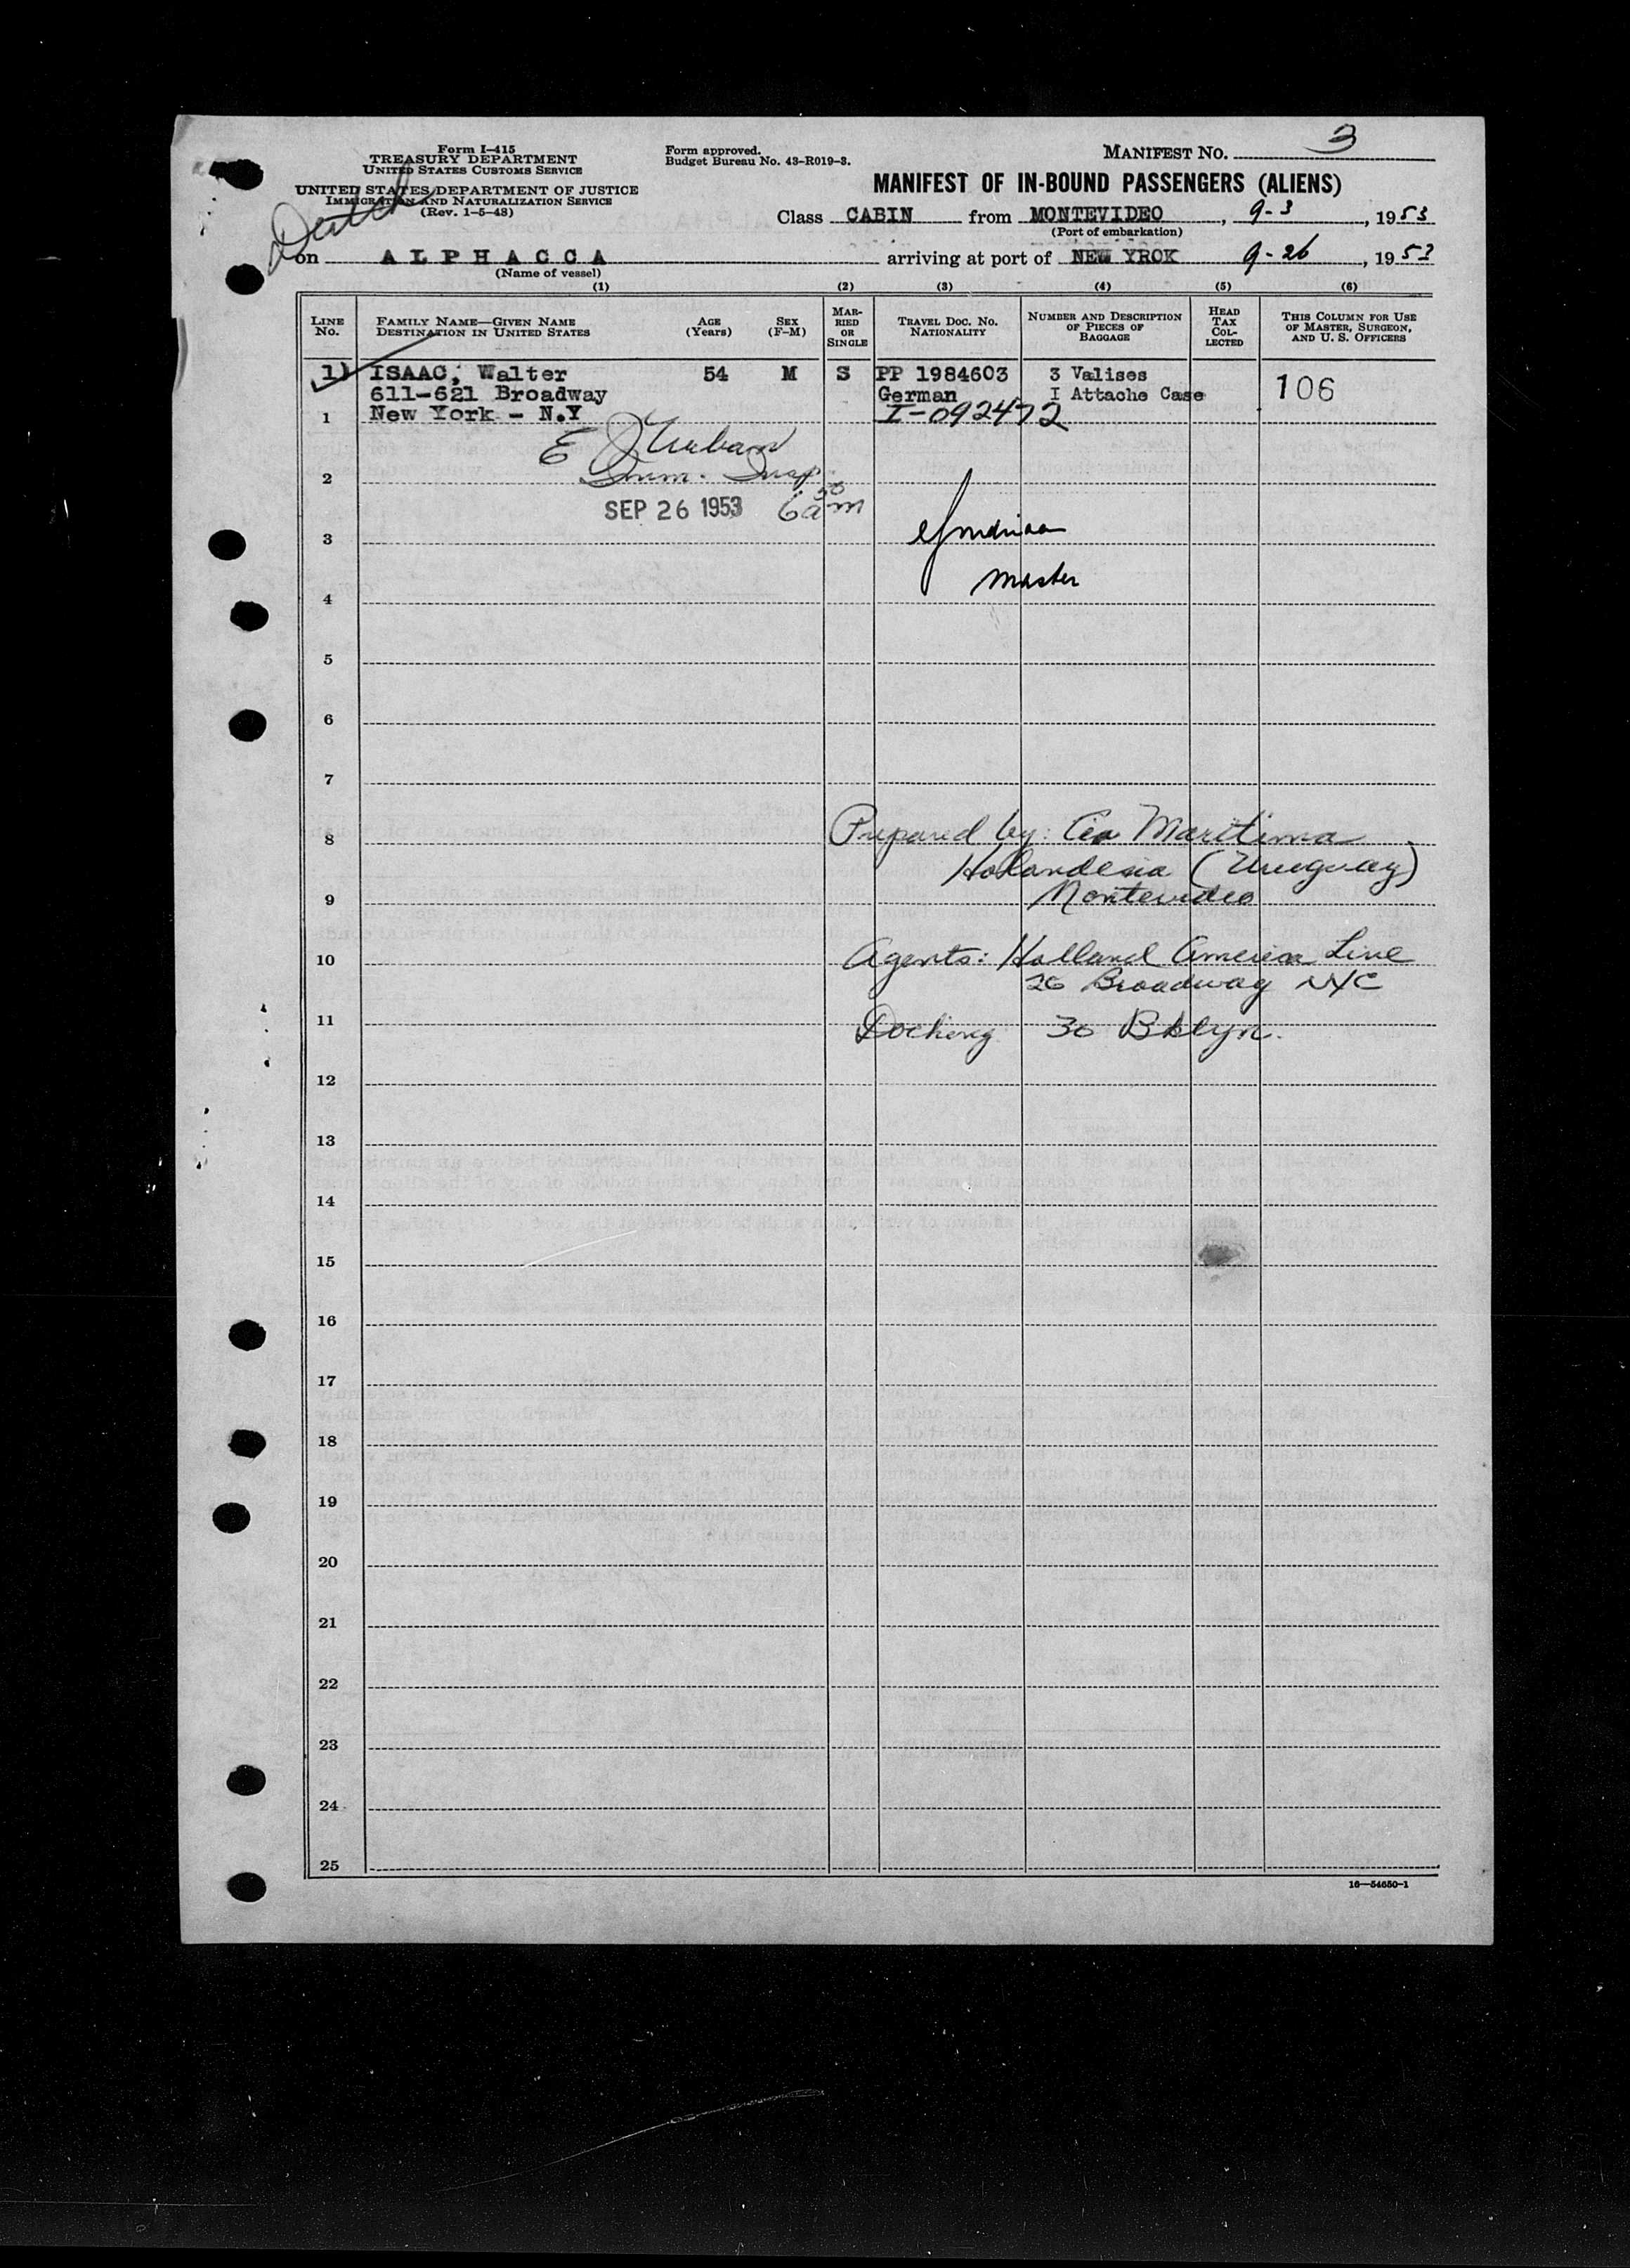 Form I-415
TREASURY DEPARTMENT
UNITED STATES CUSTOMS SERVICE
UNITED STATES DEPARTMENT OF JUSTICE
IMMIGRATION AND NATURALIZATION SERVICE
(Rev. 1-5-48)
Form approved.
Budget Bureau No. 43-R019-3.
MANIFEST No. 3
MANIFEST OF IN-BOUND PASSENGERS (ALIENS)
Dutch
Class CABIN from MONTEVIDEO, 9-3, 1953
(Port of embarkation)
on ALPHACCA arriving at port of NEW YROK 9-26, 1953
(Name of vessel)
(1) (2) (3) (4) (5) (6)
LINE No.
FAMILY NAME—GIVEN NAME
DESTINATION IN UNITED STATES
AGE (Years)
SEX (F-M)
MAR-RIED OR SINGLE
TRAVEL DOC. No. NATIONALITY
NUMBER AND DESCRIPTION OF PIECES OF BAGGAGE
HEAD TAX COL-LECTED
THIS COLUMN FOR USE OF MASTER, SURGEON, AND U. S. OFFICERS
1) ISAAC, Walter 54 M S PP 1984603 3 Valises 106
611-621 Broadway German I Attache Case
1 New York - N.Y I-092472
E J Urban
2 Imm. Insp.
SEP 26 1953 6 50 am
3
master
4
5
6
7
8 Prepared by: Cia Maritima
Holandesa (Uruguay)
9 Montevideo
10 Agents: Holland America Line
26 Broadway NYC
11 Docking 30 Bklyn.
12
13
14
15
16
17
18
19
20
21
22
23
24
25
16—54650-1